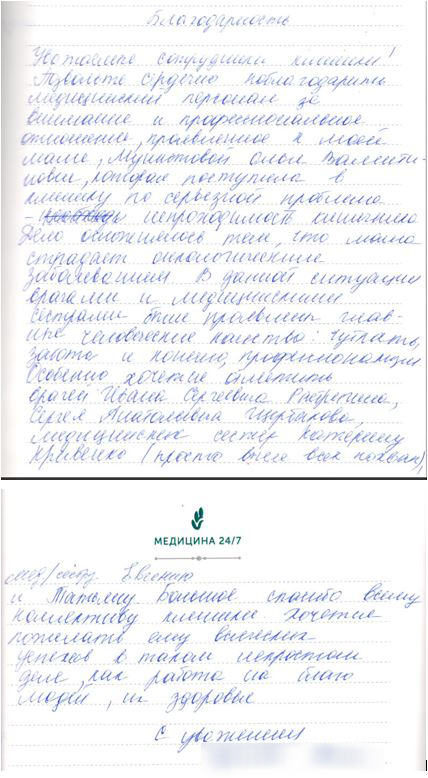 Благодарность
Уважаемые сотрудники клиники!
Позвольте сердечно поблагодарить
медицинский персонал за
внимание и профессиональное
отношение, проявленное к моей
маме, Валенти-
новне, которая поступила в
клинику по серьезной проблеме
- непроходимость кишечника
Дело осложнялось тем, что мама
страдает онкологическим
заболеванием. В данной ситуации
врачами и медицинскими
сестрами были проявлены глав-
ные человеческие качества: чуткость,
забота и конечно, профессионализм
Особенно хочется отметить
врачей Ивана Сергеевича
Сергея Анатольевича Щербакова,
медицинских сестер Катерину
Кривенко (просто выше всех похвал),
МЕДИЦИНА 24/7
мед/сестру Евгению
и Татьяну Большое спасибо всему
коллективу клиники хочется
пожелать ему всяческих
успехов в таком непростом
деле, как работа на благо
людей, их здоровье
С уважением